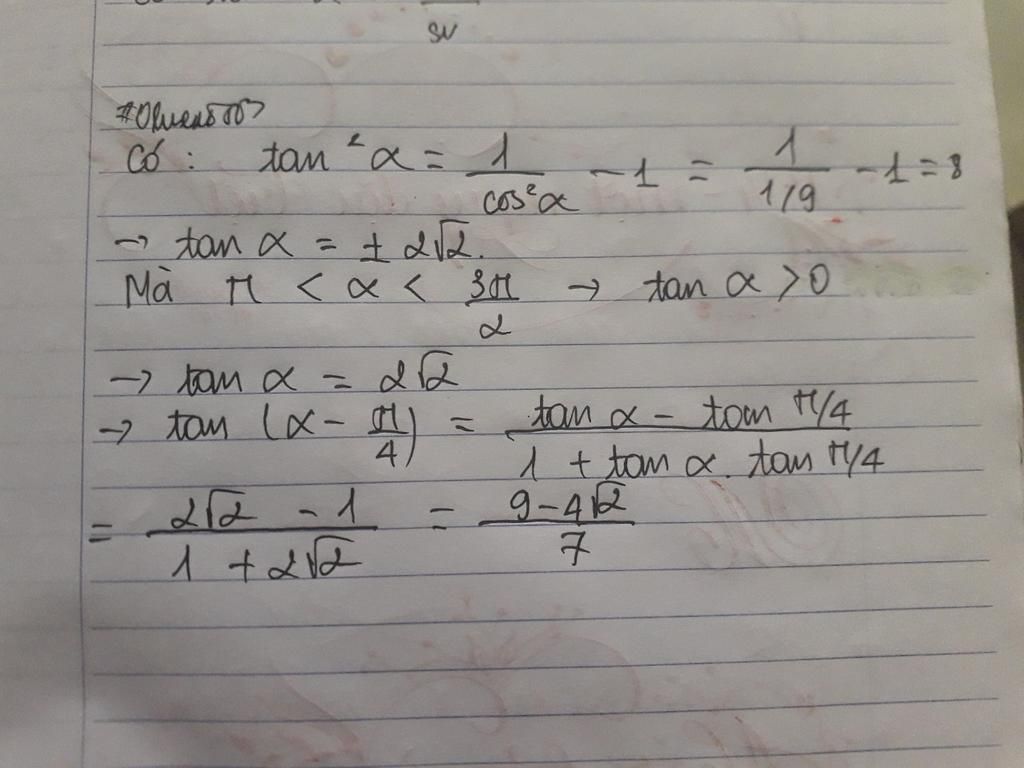 Có : tan²α = 1/cos²α - 1 = 1/(1/9) - 1 = 8
→ tan α = ± 2√2.
Mà π < α < 3π/2 → tan α > 0
→ tan α = 2√2
→ tan (α - π/4) = (tan α - tan π/4)/(1 + tan α . tan π/4)
= (2√2 - 1)/(1 + 2√2) = (9 - 4√2)/7